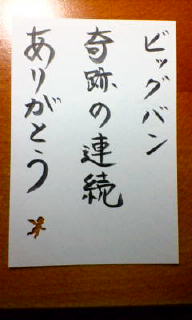 ビッグバン
奇跡の連続
ありがとう